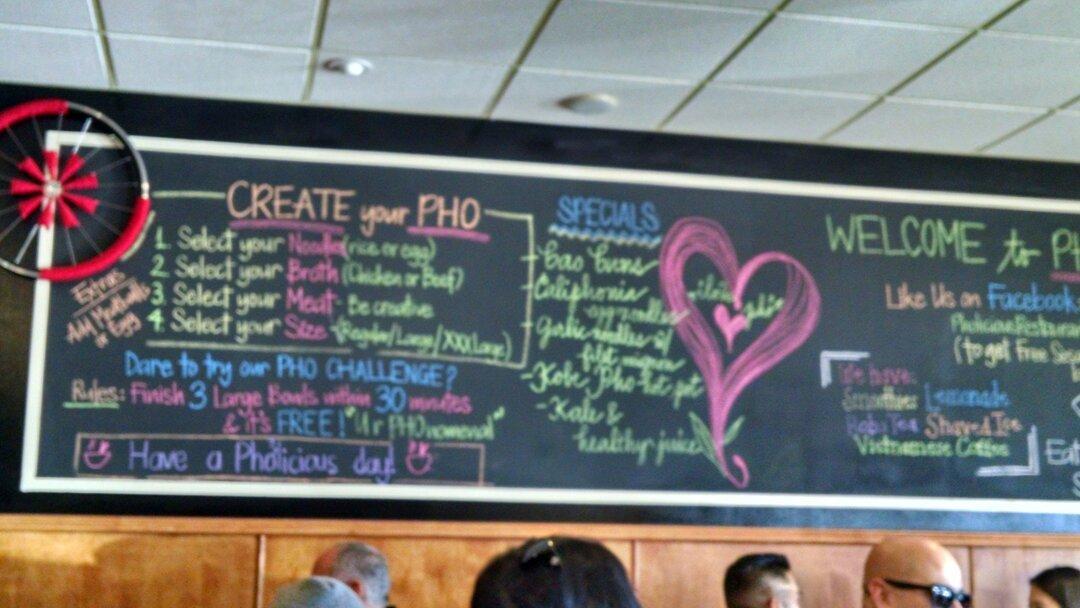 CREATE your PHO
1. Select your Noodle (rice or egg)
2. Select your Broth (Chicken or Beef)
3. Select your Meat - Be creative
4. Select your Size - (Regular/Large/XXX Large)
Extras
- Add Meatballs
or Egg
Dare to try our PHO CHALLENGE?
Rules: Finish 3 Large Bowls within 30 minutes
& it's FREE! "U r PHOnomenal"
Have a Pholicious day!
SPECIALS
- bao buns
- Caliphonia
egg noodles
- garlic noodles w/
filet mignon
- Kobe Pho-hot pot
- Kale &
healthy juice
WELCOME to
Like Us on Facebook
(to get Free
We have:
Smoothies Lemonade
Boba Tea Shaved Ice
Vietnamese Coffee